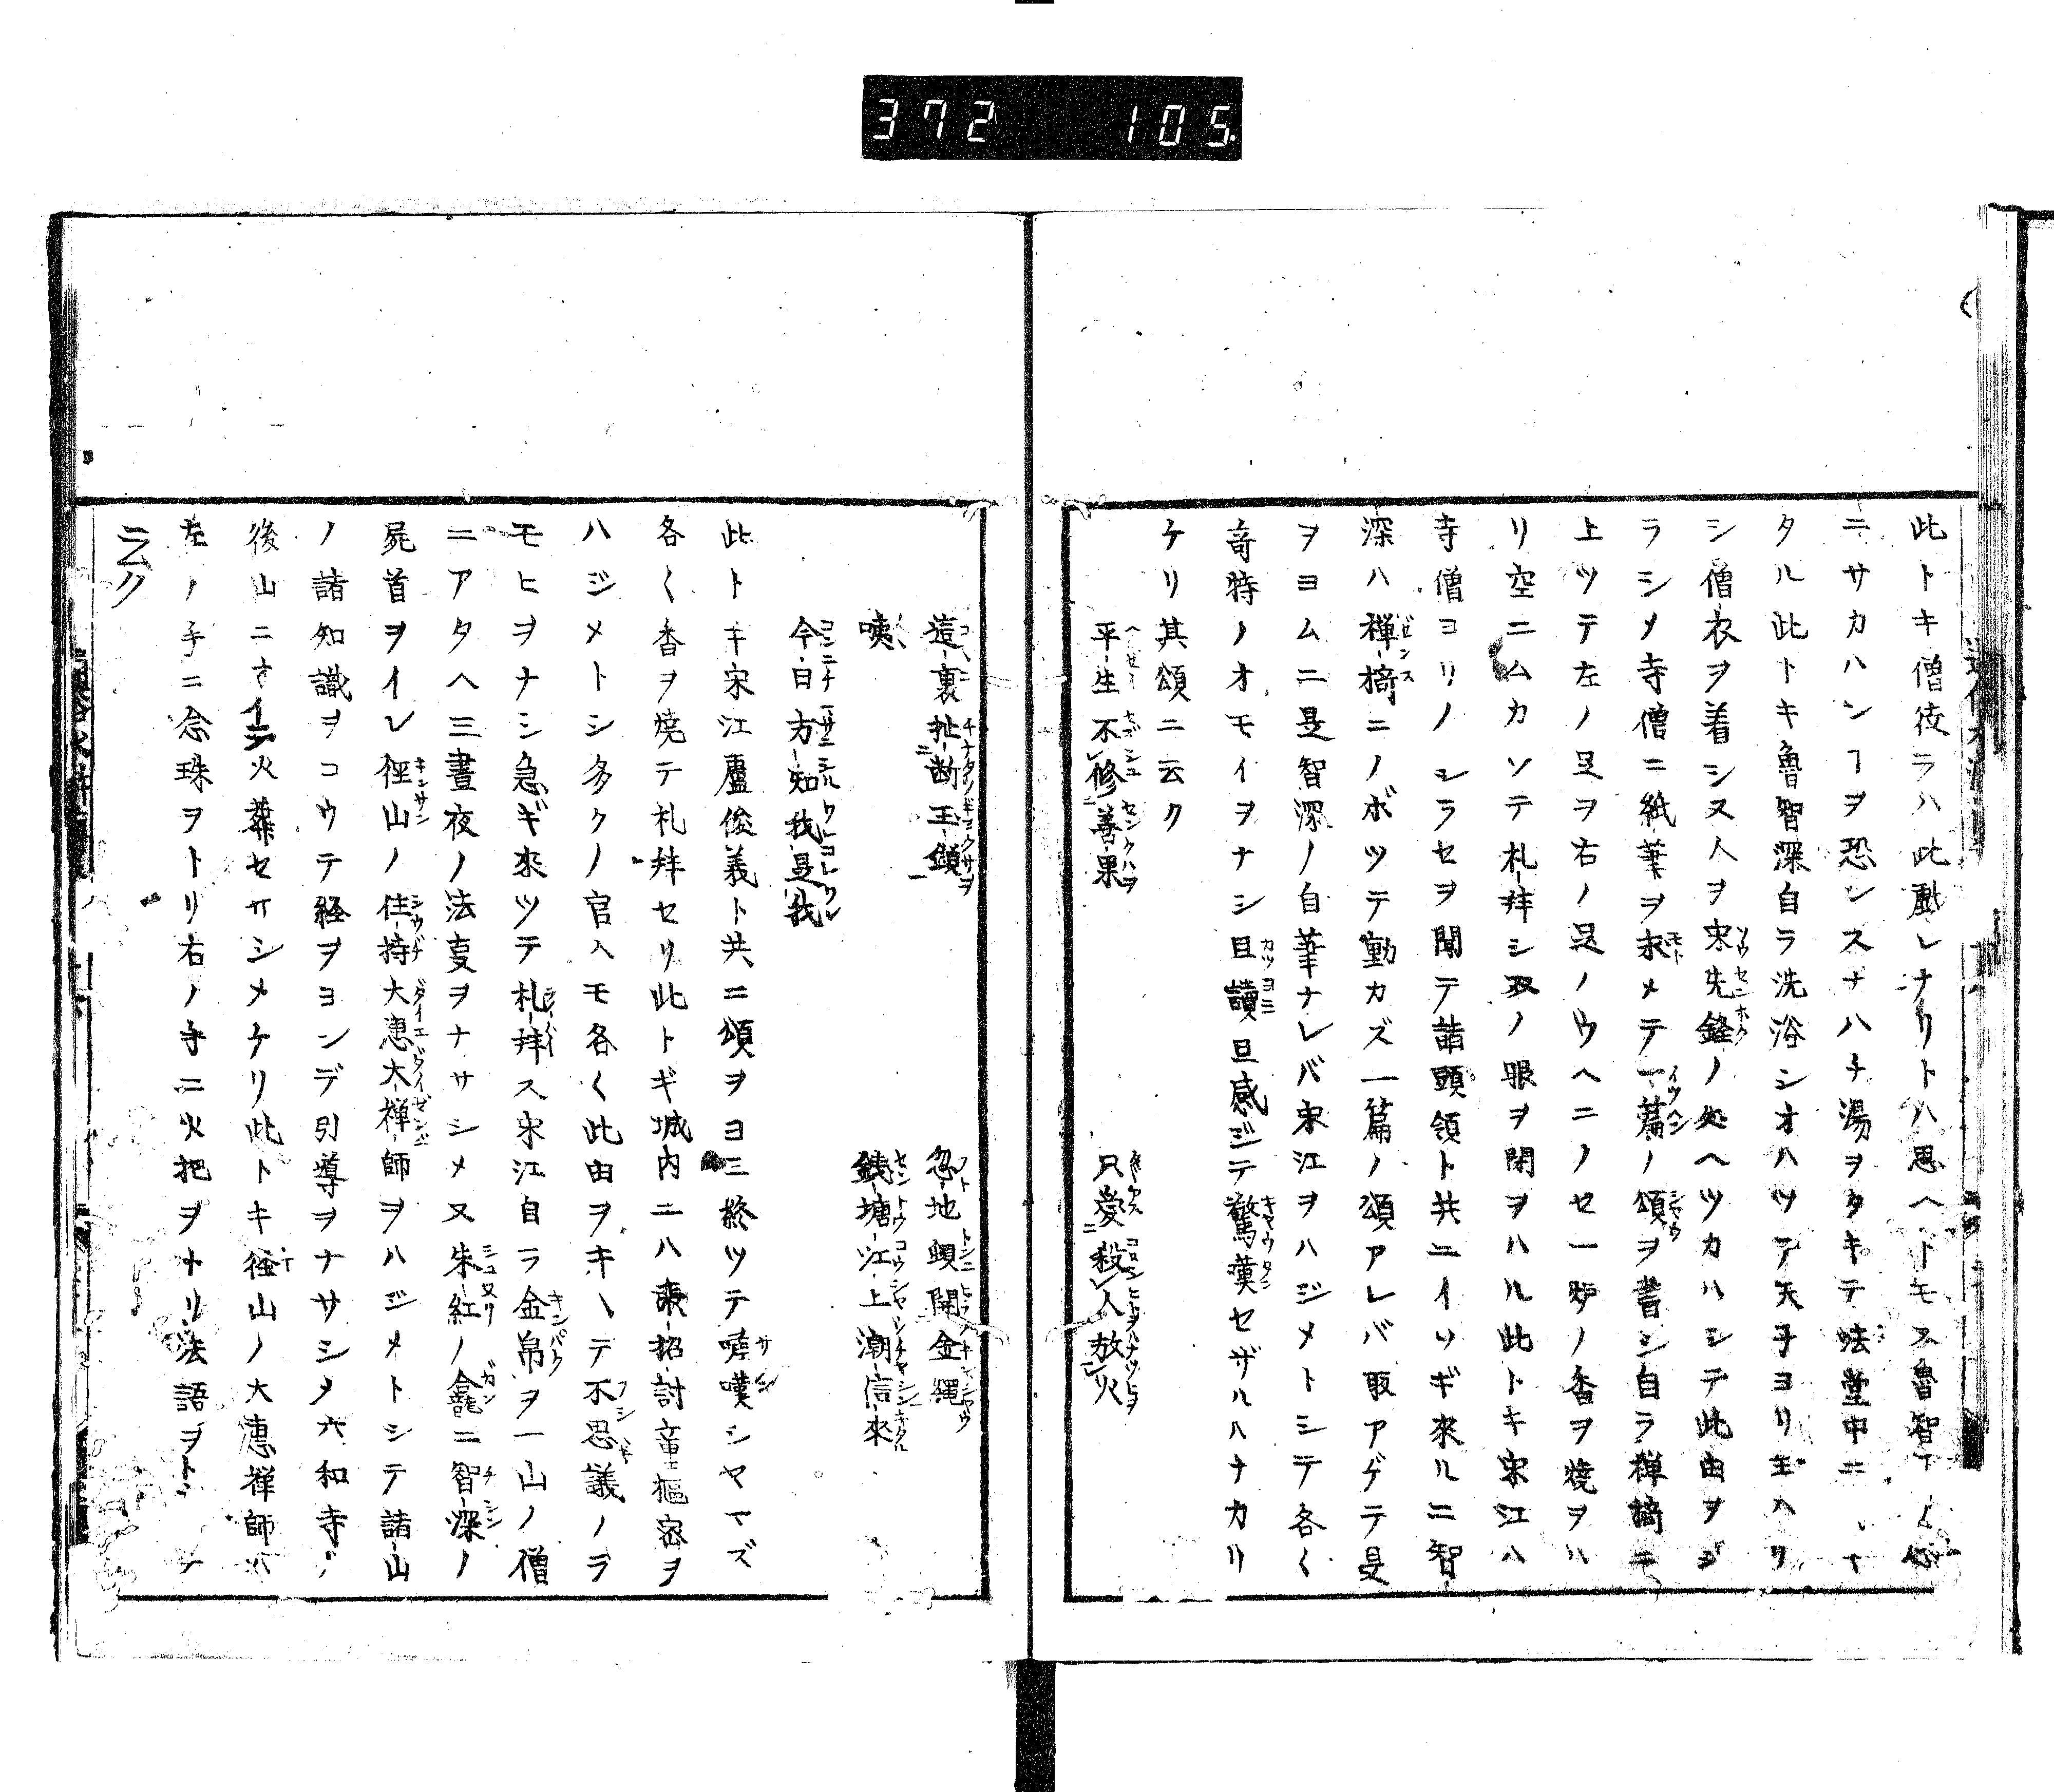 372 105
此トキ僧徒ラハ此戯レナリトハ思ヘトモ又魯智ノ心
ニサカハンヿヲ恐レスナハチ湯ヲタキテ法堂中ニ
タル此トキ魯智深自ラ洗浴シオハツテ天子ヨリ玉ハリ
シ僧衣ヲ着シ又人ヲ宋先鋒ノ処ヘツカハシテ此由ヲジ
ラシメ寺僧ニ紙筆ヲ求メテ一篇ノ頌ヲ書シ自ラ禅椅ニ
上ツテ左ノ足ヲ右ノ足ノウヘニノセ一炉ノ香ヲ焼ヲハ
リ空ニムカツテ礼拝シ双ノ眼ヲ閉ヲハル此トキ宋江ハ
寺僧ヨリノシラセヲ聞テ諸頭領ト共ニイソギ来ルニ智
深ハ禅椅ニノボツテ動カズ一篇ノ頌アレバ取アゲテ是
ヲヨムニ是智深ノ自筆ナレバ宋江ヲハジメトシテ各〱
奇特ノオモイヲナシ且讀且感ジテ驚嘆セザルハナカリ
ケリ其頌ニ云ク
平生不修善果 只愛殺人放火
忽地頓開金縄
這裏扯断玉鎖
咦 錢塘江上潮信來
今日方知我是我
此トキ宋江盧俊義ト共ニ頌ヲヨミ終ツテ嗟嘆シヤマズ
各〱香ヲ焼テ礼拝セリ此トギ城内ニハ張招討童樞密ヲ
ハジメトシ多クノ官人モ各〱此由ヲキヽテ不思議ノヲ
モヒヲナシ急ギ来ツテ礼拝ス宋江自ラ金帛ヲ一山ノ僧
ニアタヘ三晝夜ノ法叓ヲナサシメ又朱紅ノ龕ニ智深ノ
屍首ヲイレ径山ノ住持大惠大禅師ヲハジメトシテ諸山
ノ諸知識ヲコウテ経ヲヨンデ引導ヲナサシタ六和寺
後山ニオイテ火葬セサシメケリ此トキ径山ノ大惠禅師ハ
左ノ手ニ念珠ヲトリ右ノ手ニ火把ヲトリ法語ヲ
ニ云ク